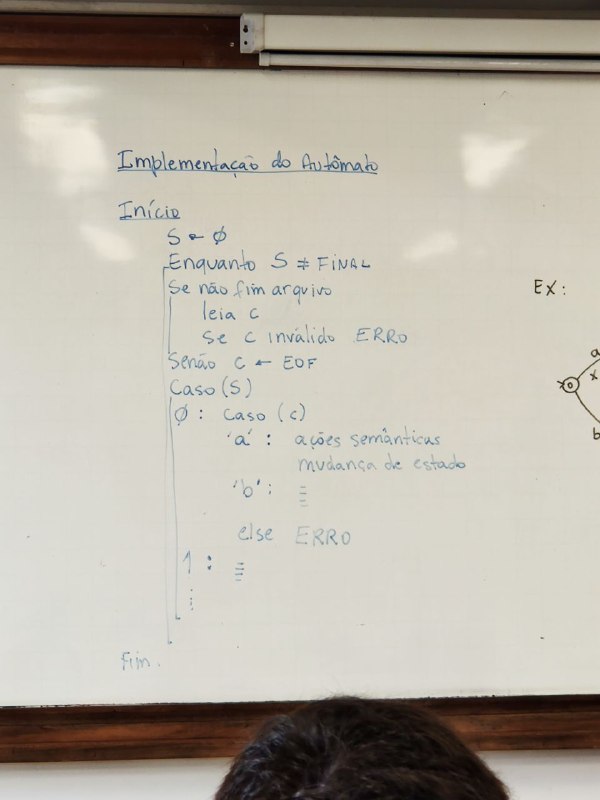 Implementação do Autômato
Início
S ← Ø
Enquanto S ≠ FINAL
Se não fim arquivo
leia c
se c inválido ERRO
Senão c ← EOF
Caso (S)
Ø : Caso (c)
'a' : ações semânticas
mudança de estado
'b' : ≡
else ERRO
1 : ≡
⋮
Fim.
EX:
a
x
0
b